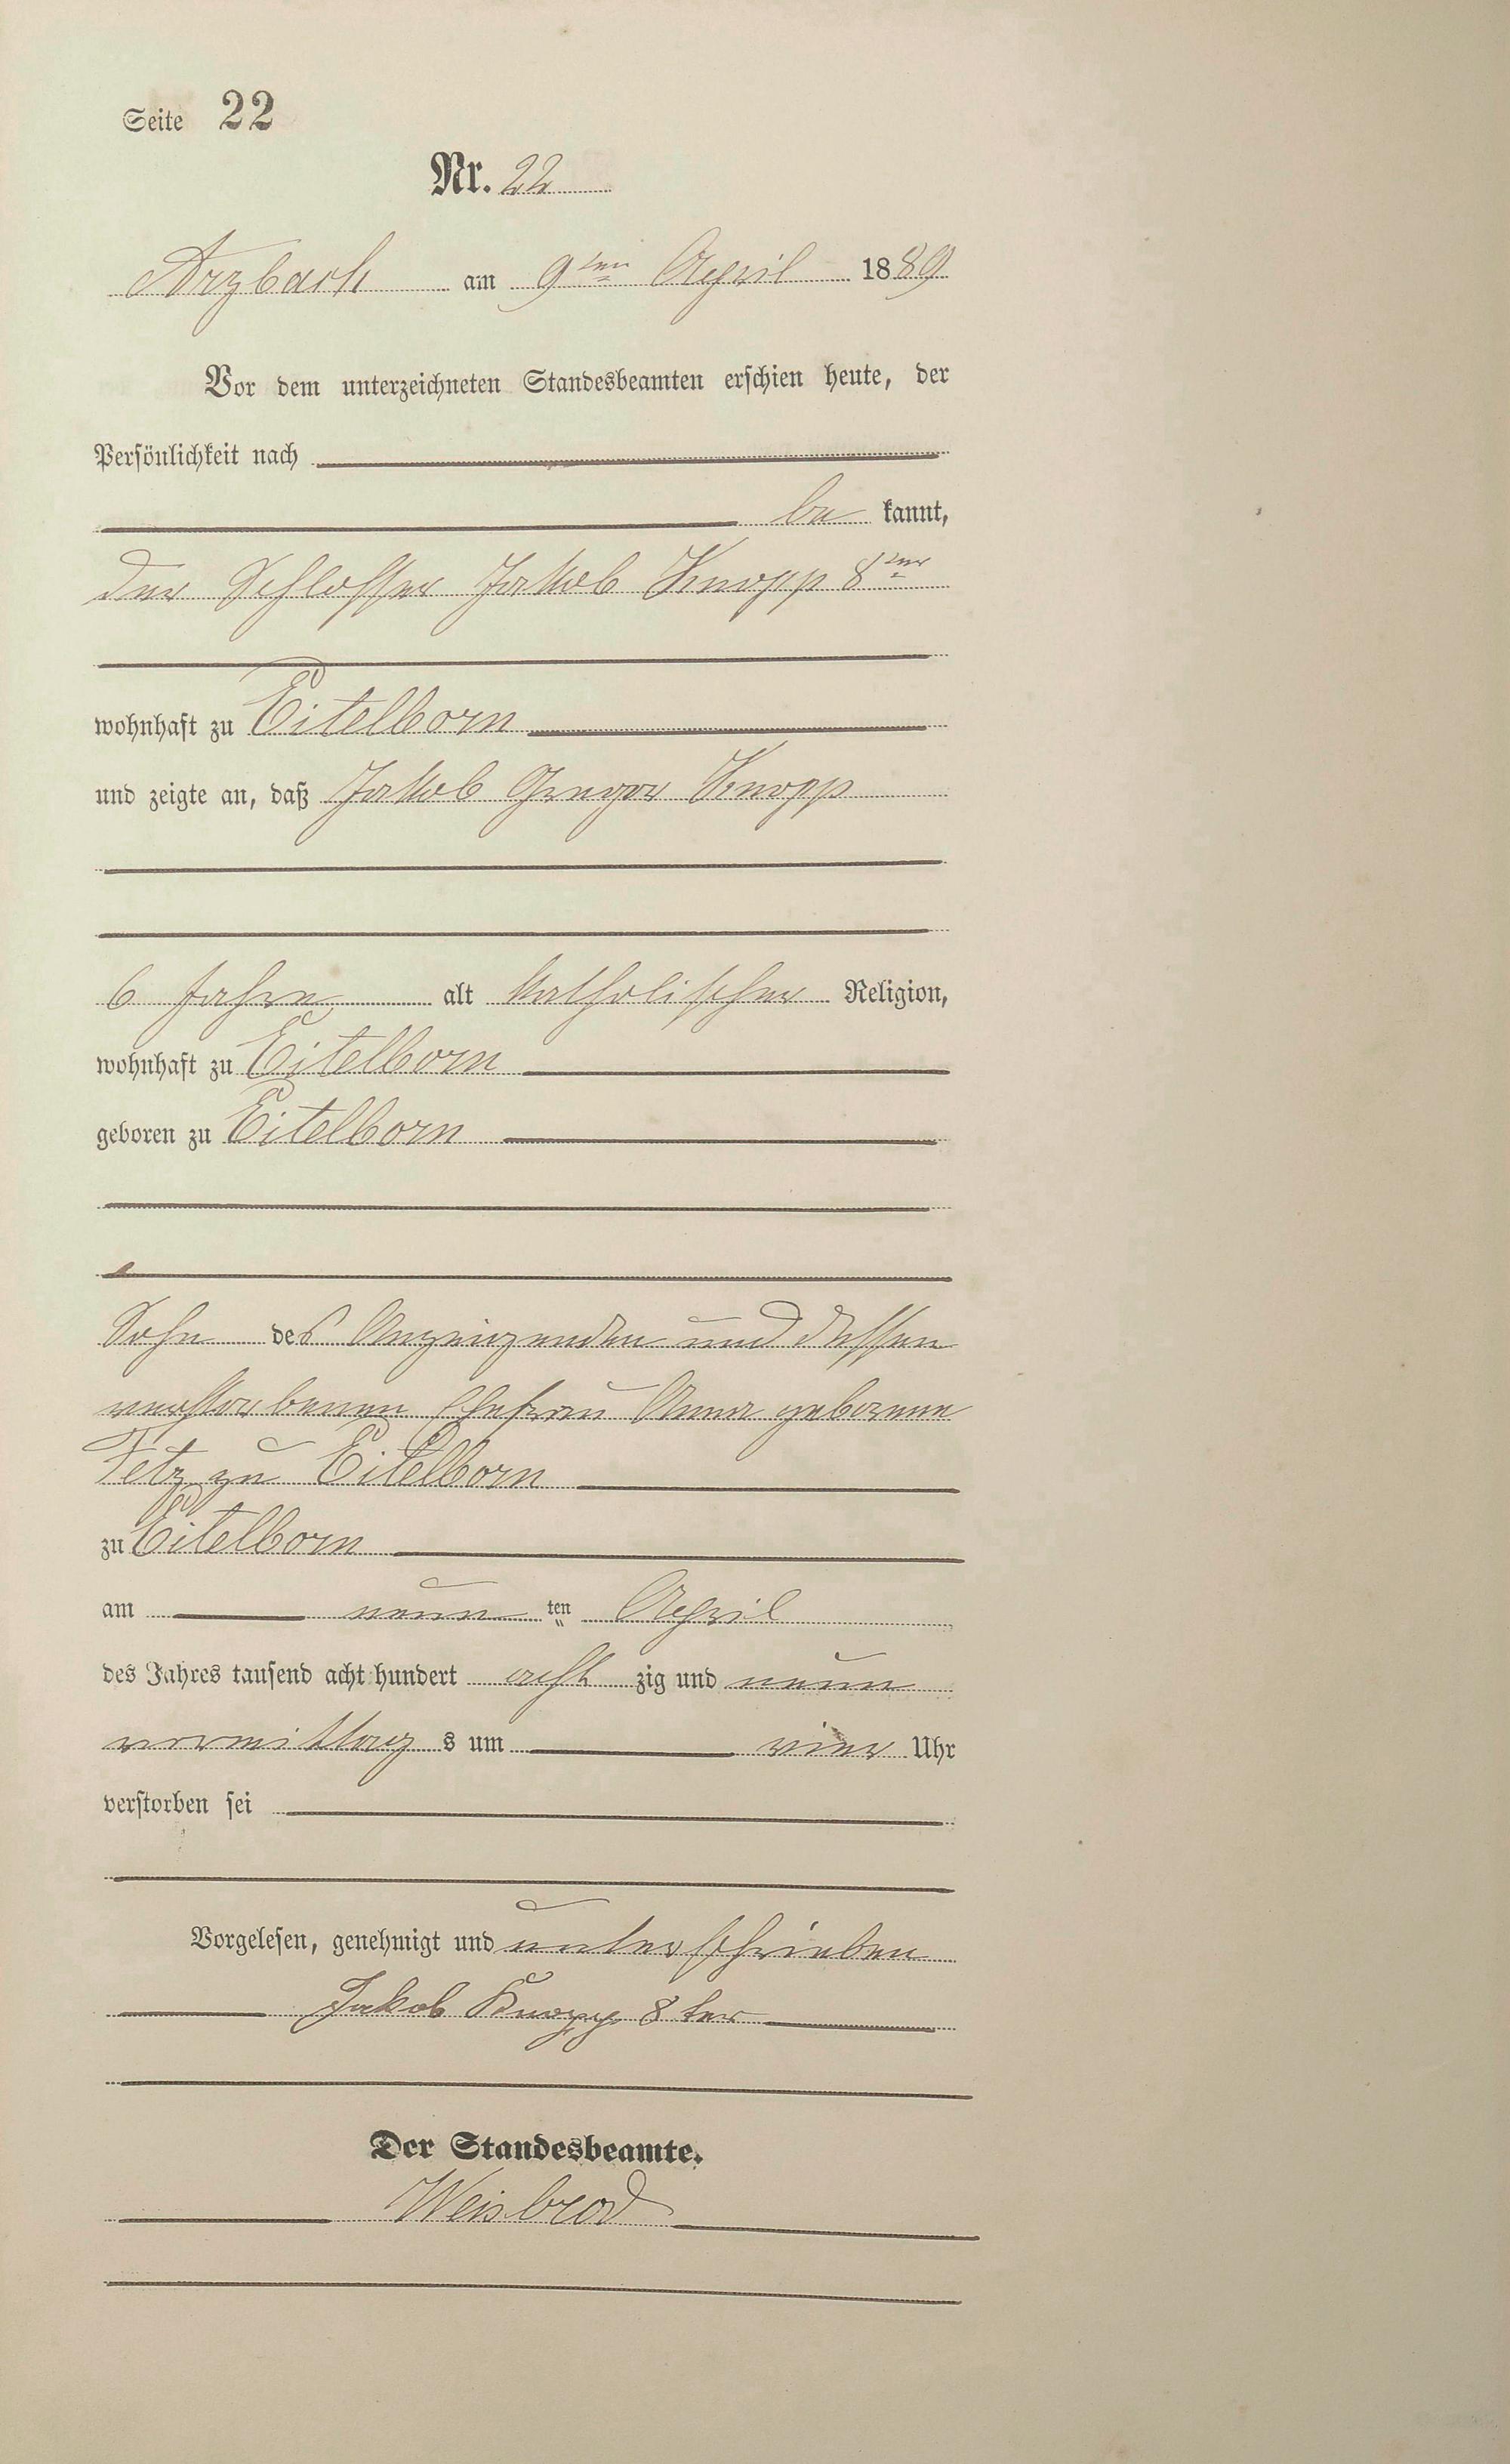 Seite 22
Nr. 22
Arzbach am 9ten April 1889
Vor dem unterzeichneten Standesbeamten erschien heute, der
Persönlichkeit nach
be kannt,
der Schlosser Jakob Knopp 8ter
wohnhaft zu Eitelborn
und zeigte an, daß Jakob Gregor Knopp
6 Jahre alt katholischer Religion,
wohnhaft zu Eitelborn
geboren zu Eitelborn
Sohn des Anzeigenden und dessen
verstorbenen Ehefrau Anna geborene
Fetz zu Eitelborn
zu Eitelborn
am neun ten April
des Jahres tausend acht hundert acht zig und neun
vormittag s um vier Uhr
verstorben sei
Vorgelesen, genehmigt und unterschrieben
Jakob Knopp 8ter
Der Standesbeamte.
Weisbrod